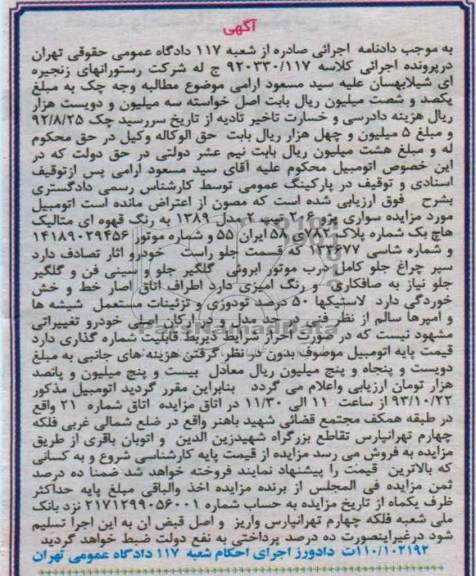 آگهی
به موجب دادنامه اجرائی صادره از شعبه ۱۱۷ دادگاه عمومی حقوقی تهران
درپرونده اجرائی کلاسه ۹۲۰۳۳۰/۱۱۷ ج له شرکت رستورانهای زنجیره
ای شیلابهسان علیه سید مسعود ارامی موضوع مطالبه وجه چک به مبلغ
یکصد و شصت میلیون ریال بابت اصل خواسته سه میلیون و دویست هزار
ریال هزینه دادرسی و خسارت تاخیر تادیه از تاریخ سررسید چک ۹۲/۸/۲۵
و مبلغ ۵ میلیون و چهل هزار ریال بابت حق الوکاله وکیل در حق محکوم
له و مبلغ هشت میلیون ریال بابت نیم عشر دولتی در حق دولت که در
این خصوص اتومبیل محکوم علیه آقای سید مسعود ارامی پس ازتوقیف
اسنادی و توقیف در پارکینگ عمومی توسط کارشناس رسمی دادگستری
بشرح فوق ارزیابی شده است که مصون از اعتراض مانده است اتومبیل
مورد مزایده سواری پژو ۲۰۶ تیپ ۲ مدل ۱۳۸۹ به رنگ قهوه ای متالیک
هاچ بک شماره پلاک ۷۸۲ی۵۸ ایران ۵۵ و شماره موتور ۱۴۱۸۹۰۲۹۴۵۶
و شماره شاسی ۷۲۴۶۷۷ که قسمت جلو راست خودرو اثار تصادف دارد
سپر چراغ جلو کامل درب موتور ابروئی گلگیر جلو و سینی فن و گلگیر
جلو نیاز به صافکاری و رنگ امیزی دارد اطراف اتاق اصار خط و خش
خوردگی دارد لاستیکها ۵۰ درصد تودوزی و تزئینات مستعمل شیشه ها
و امپرها سالم از نظر فنی در حد مدل و در ارکان اصلی خودرو تغییراتی
مشهود نیست که در صورت احراز شرایط ذیربط قابلیت شماره گذاری دارد
قیمت پایه اتومبیل موصوف بدون در نظر گرفتن هزینه های جانبی به مبلغ
دویست و پنجاه و پنج میلیون ریال معادل بیست و پنج میلیون و پانصد
هزار تومان ارزیابی واعلام می گردد بنابراین مقرر گردید اتومبیل مذکور
۹۳/۱۰/۲۲ از ساعت ۱۱ الی ۱۱/۳۰ در اتاق مزایده اتاق شماره ۲۱ واقع
در طبقه همکف مجتمع قضائی شهید باهنر واقع در ضلع شمالی غربی فلکه
چهارم تهرانپارس تقاطع بزرگراه شهیدزین الدین و اتوبان باقری از طریق
مزایده به فروش می رسد مزایده از قیمت پایه کارشناسی شروع و به کسانی
که بالاترین قیمت را پیشنهاد نمایند فروخته خواهد شد ضمنا ده درصد
ثمن مزایده فی المجلس از برنده مزایده اخذ والباقی مبلغ پایه حداکثر
ظرف یکماه از تاریخ مزایده به حساب شماره ۲۱۷۱۲۹۹۰۵۶۰۰۱ نزد بانک
ملی شعبه فلکه چهارم تهرانپارس واریز و اصل قبض ان به این اجرا تسلیم
شود درغیراینصورت ده درصد پرداختی به نفع دولت ضبط خواهد گردید
۱۱۰/۱۰۲۱۹۳ت دادورز اجرای احکام شعبه ۱۱۷ دادگاه عمومی تهران